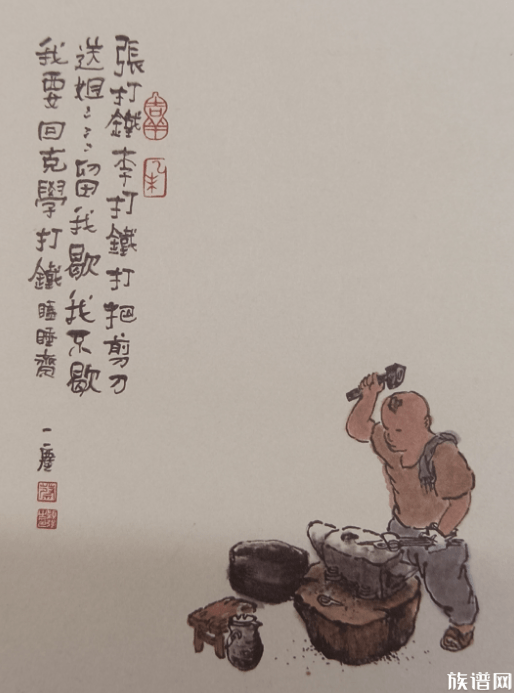 張打鐵李打鐵打把剪刀
送姐〻〻留我歇我不歇
我要回克學打鐵瞌睡齋
一塵
族谱网